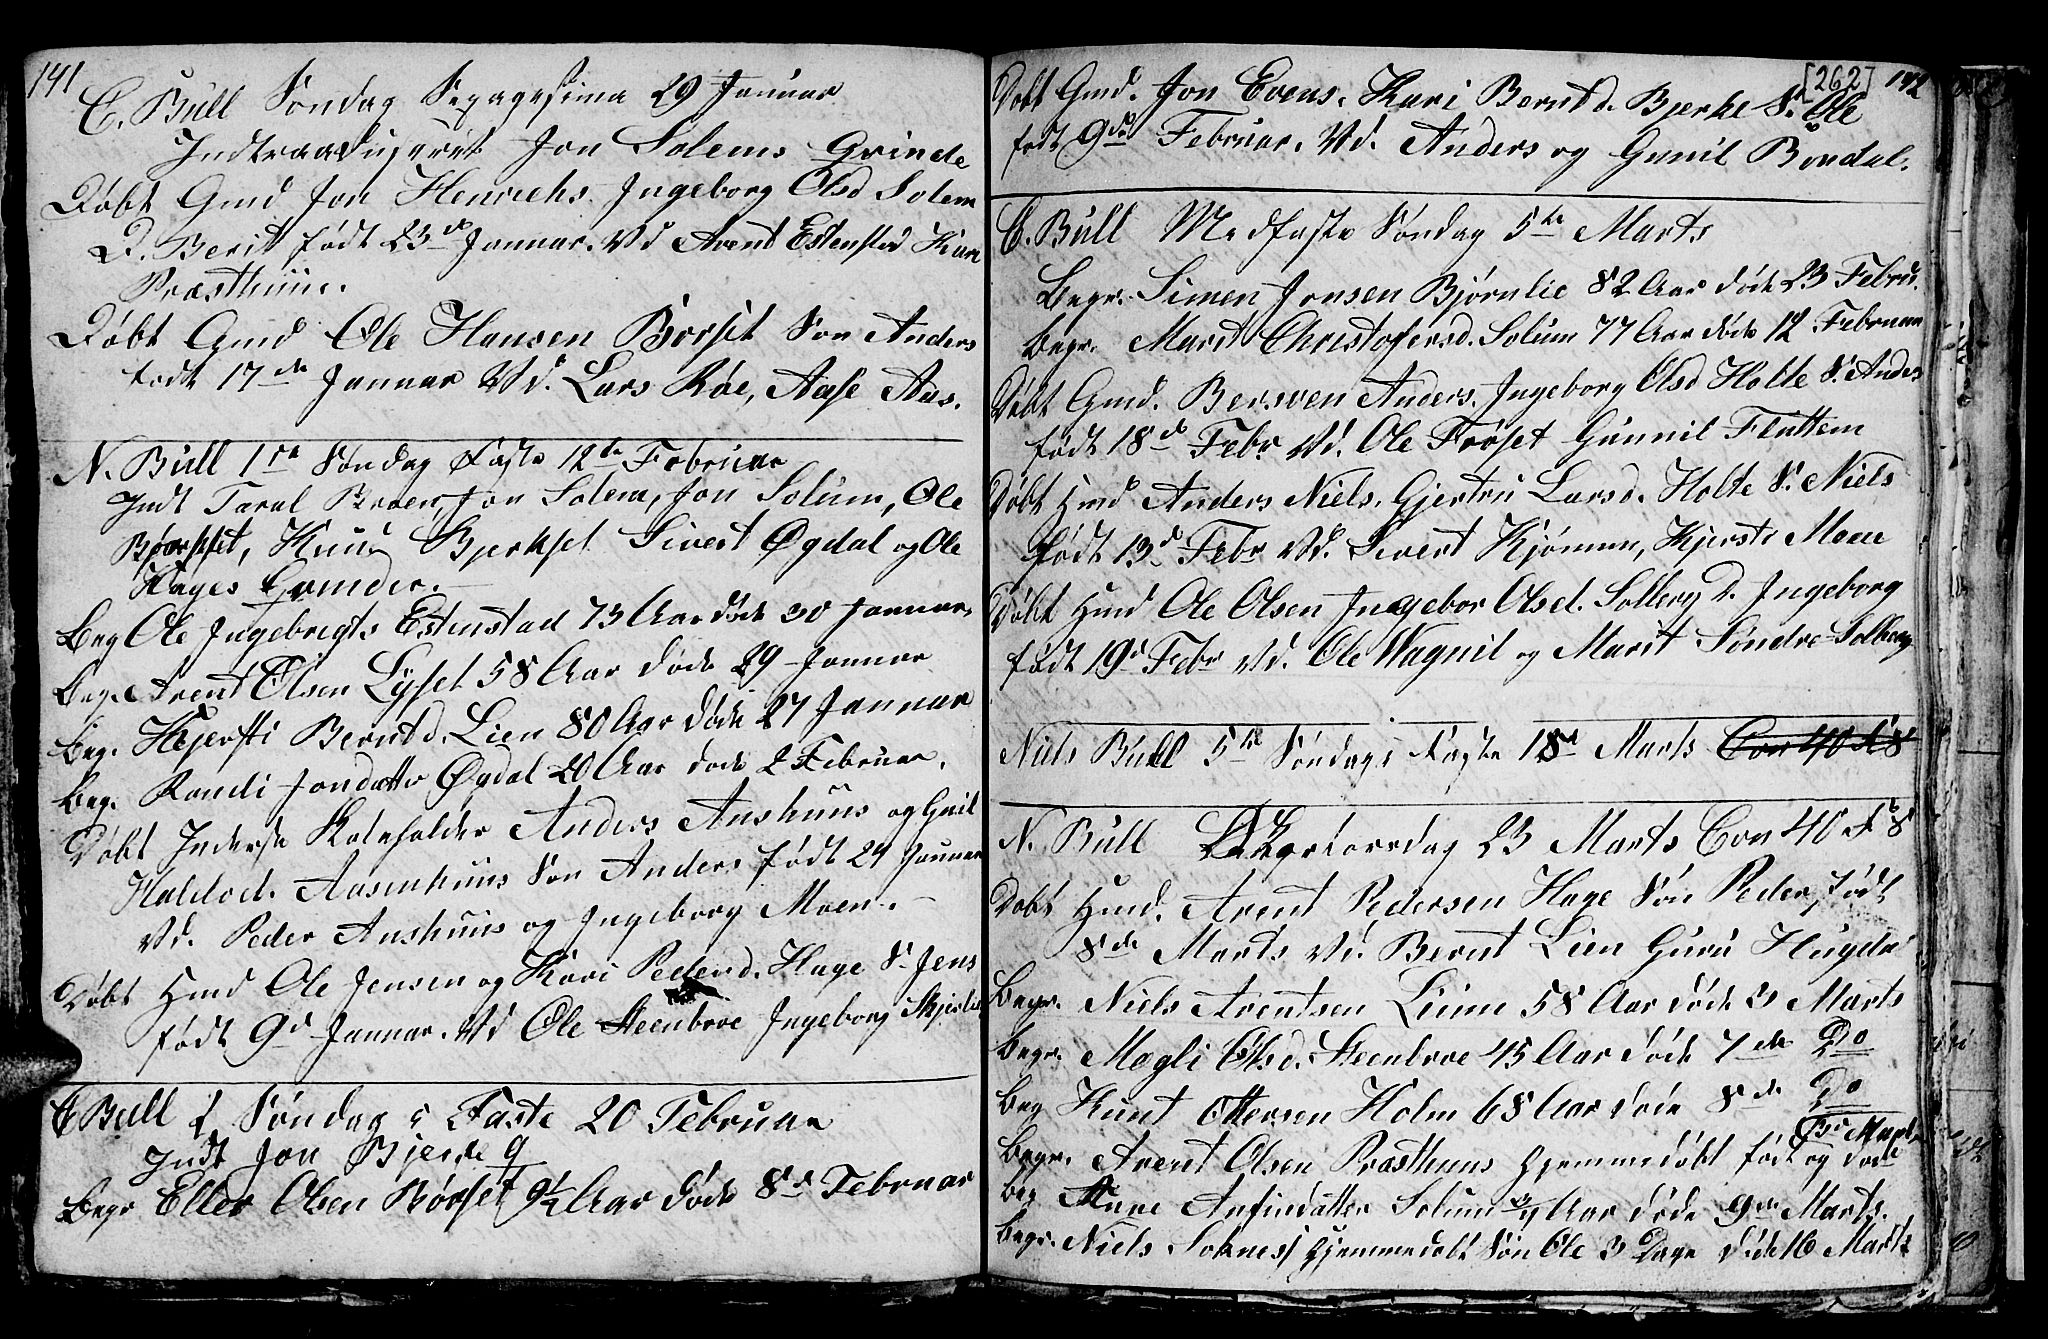 141
C. Bull Søndag Sexagesima 29 Januar
Indtr Jon Solems Qvinde
Døbt Gmd Jon Henrichs. Ingeborg Olsd Solem
D. Berit født 23de Januar. Vd Arent Estensted Kari
Præsthuus.
Døbt Gmd Ole Hansen Børset Søn Anders
født 17de Januar Vd. Lars Røe, Aase Aas.
N. Bull 1ste Søndag Faste 12te Februar
Indt Taral Jon Solem, Jon Solum, Ole
Knud Bjerkset Sivert Øgdal og Ole
Hages Qvinder.
Beg Ole Ingebregts Estenstad 73 Aar døde 30 Januar
Beg. Arent Olsen Lyset 58 Aar døde 29 Januar
Beg. Kjersti Berntd. Lien 80 Aar døde 27 Januar
Beg. Randi Jondatter Øgdal 20 Aar døde 2 Februar.
Døbt Inderste Anders Aushuus og
Aasenhuus Søn Anders født 24 Januar
Vd. Peder Aushuus og Ingeborg Moen.
Døbt Hmd Ole Jensen og Kari Pedersd. Hage S. Jens
født 9d Januar. Vd Ole Steenbroe Ingeborg
C Bull Søndag i Faste 20 Februar
Indt Jon Bjerke Q
Begr Eller Olsen Børset 9½ Aar døde 8de Februar
[262] 142
Døbt Gmd. Jon Evens. Kari Berntd. Bjerke S. Ole
født 9de Februar. Vd. Anders og Gunil Bordal.
C. Bull Midfaste Søndag 5te Marts
Begr. Simen Jonsen Bjørnlie 82 Aar døde 23 Febru.
Begr. Marit Christofersd. Solum 77 Aar døde 12 Februar
Døbt Gmd. Bersven Anders. Ingeborg Olsd Holte S. Anders
født 18d Febr Vd. Ole Forset Gunnil Fluttem
Døbt Hmd Anders Niels. Gjertru Larsd. Holte S. Niels
født 13d Febr Vd. Sivert Kjønnum, Kjersti Moen
Døbt Hmd Ole Olsen Ingebor Olsd. Solberg D. Ingeborg
født 19d Febr Vd. Ole Wagnil og Marit Søndre Solberg
Niels Bull 5te Søndag i Faste 18 Marts
N. Bull Skiertorsdag 23 Marts Con 40 St 8
Døbt Hmd. Arent Pedersen Hage Søn Peder, født
8de Marts Vd. Bernt Lien Guru Hugdal
Begr. Niels Arentsen Lium 58 Aar døde 3 Marts
Begr. Magli Olsd. Steenbroe 45 Aar døde 7de Do
Beg Knut Ottersen Holm 68 Aar døde 8de Do
Begr. Arent Olsen Præsthuus hjemmedøbt født og døde
Marts
Beg Anne Anfindatter Solum Aar døde 9de Marts.
Begr. Niels Soknes hjemmedøbt Søn Ole 3 Dage døde 16 Marts